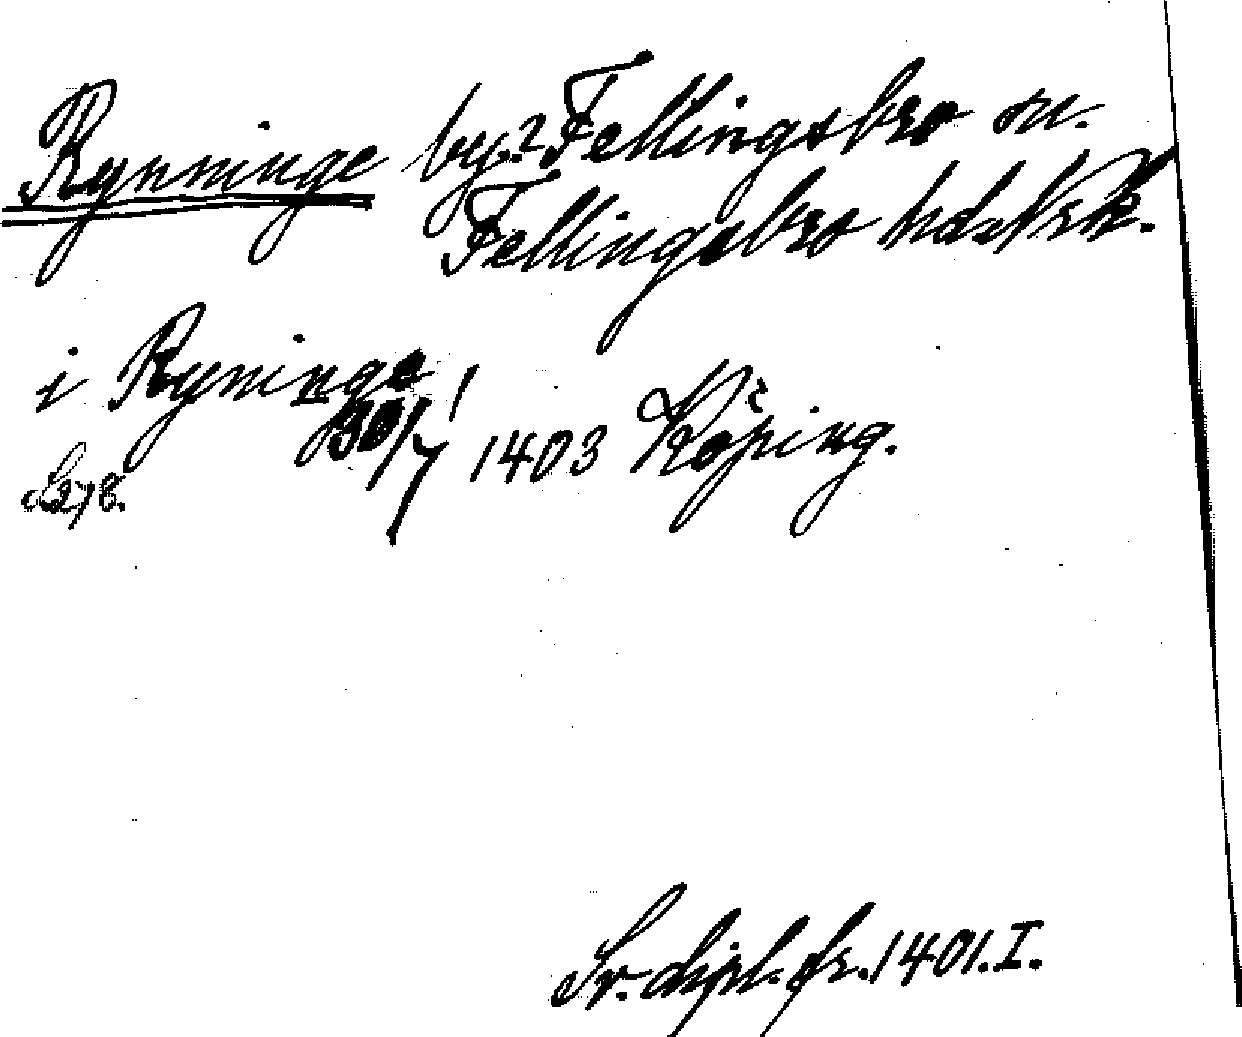 Rynninge by? Fellingsbro sn.
Fellingsbro hds Vstm.
i Ryninge
30/7 1403 Köping.
S. 278.
Sv. dipl. fr. 1401. I.